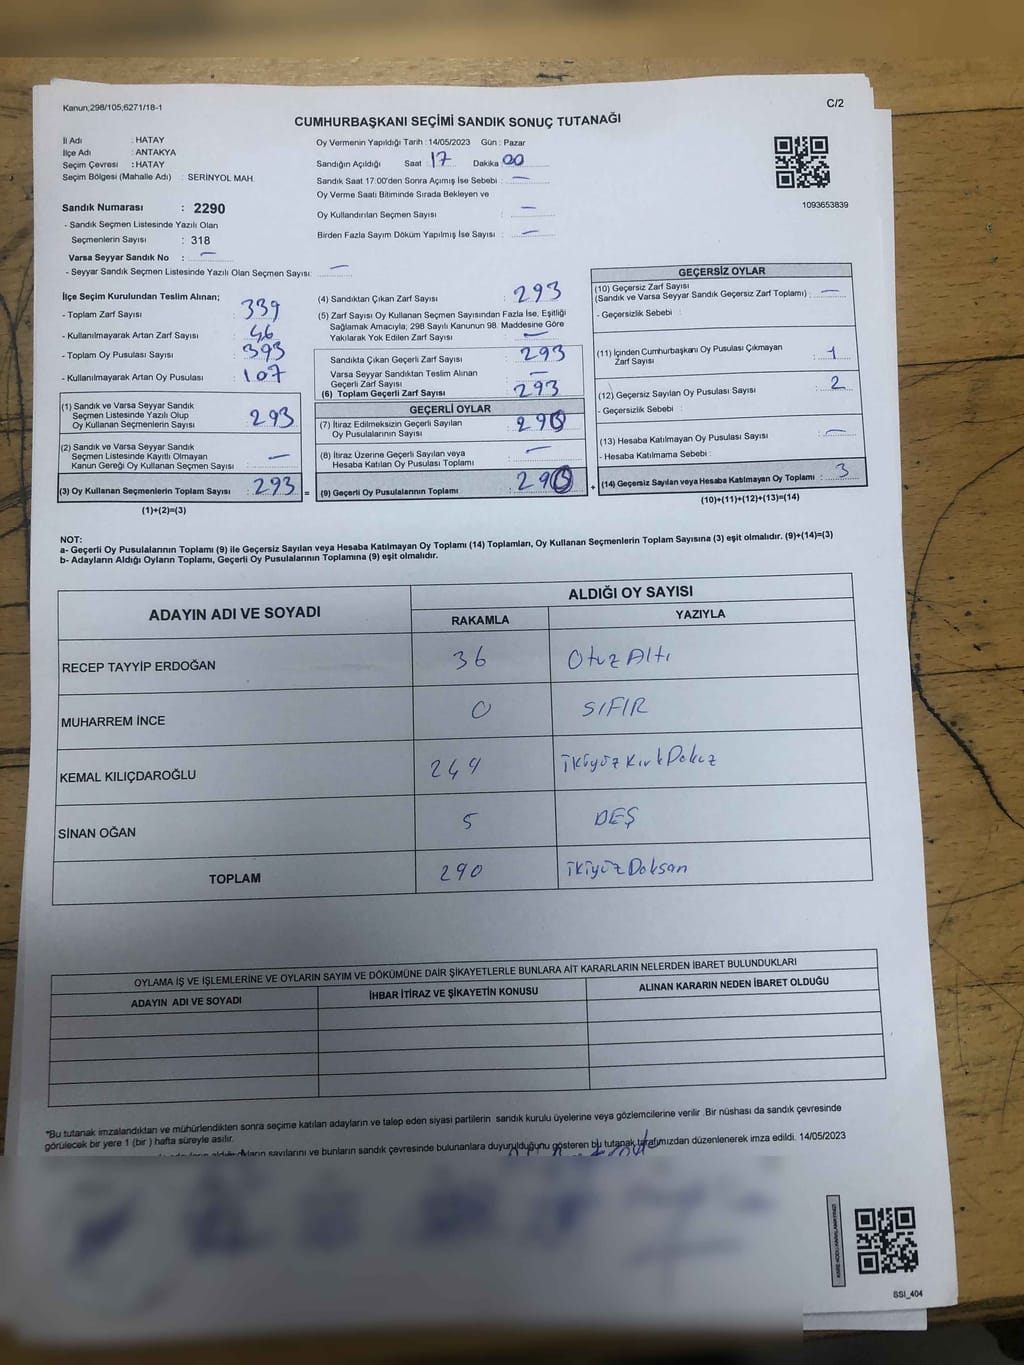 Kanun;298/105,6271/18-1
C/2
CUMHURBAŞKANI SEÇİMİ SANDIK SONUÇ TUTANAĞI
İl Adı : HATAY
İlçe Adı : ANTAKYA
Seçim Çevresi : HATAY
Seçim Bölgesi (Mahalle Adı) : SERİNYOL MAH.
Oy Vermenin Yapıldığı Tarih : 14/05/2023 Gün : Pazar
Sandığın Açıldığı Saat 17 Dakika 00
Sandık Saat 17:00'den Sonra Açımış İse Sebebi : —
Oy Verme Saati Bitiminde Sırada Bekleyen ve
Oy Kullandırılan Seçmen Sayısı : —
Birden Fazla Sayım Döküm Yapılmış İse Sayısı : —
1093653839
Sandık Numarası : 2290
- Sandık Seçmen Listesinde Yazılı Olan
Seçmenlerin Sayısı : 318
Varsa Seyyar Sandık No : —
- Seyyar Sandık Seçmen Listesinde Yazılı Olan Seçmen Sayısı: —
İlçe Seçim Kurulundan Teslim Alınan;
- Toplam Zarf Sayısı : 339
- Kullanılmayarak Artan Zarf Sayısı : 46
- Toplam Oy Pusulası Sayısı : 393
- Kullanılmayarak Artan Oy Pusulası : 107
(1) Sandık ve Varsa Seyyar Sandık
Seçmen Listesinde Yazılı Olup
Oy Kullanan Seçmenlerin Sayısı : 293
(2) Sandık ve Varsa Seyyar Sandık
Seçmen Listesinde Kayıtlı Olmayan
Kanun Gereği Oy Kullanan Seçmen Sayısı : —
(3) Oy Kullanan Seçmenlerin Toplam Sayısı : 293 =
(1)+(2)=(3)
(4) Sandıktan Çıkan Zarf Sayısı : 293
(5) Zarf Sayısı Oy Kullanan Seçmen Sayısından Fazla İse, Eşitliği
Sağlamak Amacıyla; 298 Sayılı Kanunun 98. Maddesine Göre
Yakılarak Yok Edilen Zarf Sayısı : —
Sandıkta Çıkan Geçerli Zarf Sayısı : 293
Varsa Seyyar Sandıktan Teslim Alınan
Geçerli Zarf Sayısı : —
(6) Toplam Geçerli Zarf Sayısı : 293
GEÇERLİ OYLAR
(7) İtiraz Edilmeksizin Geçerli Sayılan
Oy Pusulalarının Sayısı : 290
(8) İtiraz Üzerine Geçerli Sayılan veya
Hesaba Katılan Oy Pusulası Toplamı : —
(9) Geçerli Oy Pusulalarının Toplamı : 290 +
GEÇERSİZ OYLAR
(10) Geçersiz Zarf Sayısı
(Sandık ve Varsa Seyyar Sandık Geçersiz Zarf Toplamı) : —
- Geçersizlik Sebebi :
(11) İçinden Cumhurbaşkanı Oy Pusulası Çıkmayan
Zarf Sayısı : 1
(12) Geçersiz Sayılan Oy Pusulası Sayısı : 2
- Geçersizlik Sebebi :
(13) Hesaba Katılmayan Oy Pusulası Sayısı : —
- Hesaba Katılmama Sebebi :
(14) Geçersiz Sayılan veya Hesaba Katılmayan Oy Toplamı : 3
(10)+(11)+(12)+(13)=(14)
NOT:
a- Geçerli Oy Pusulalarının Toplamı (9) ile Geçersiz Sayılan veya Hesaba Katılmayan Oy Toplamı (14) Toplamları, Oy Kullanan Seçmenlerin Toplam Sayısına (3) eşit olmalıdır. (9)+(14)=(3)
b- Adayların Aldığı Oyların Toplamı, Geçerli Oy Pusulalarının Toplamına (9) eşit olmalıdır.
ADAYIN ADI VE SOYADI
ALDIĞI OY SAYISI
RAKAMLA YAZIYLA
RECEP TAYYİP ERDOĞAN 36 Otuz Altı
MUHARREM İNCE 0 SIFIR
KEMAL KILIÇDAROĞLU 249 ikiyüz Kırk Dokuz
SİNAN OĞAN 5 BEŞ
TOPLAM 290 ikiyüz Doksan
OYLAMA İŞ VE İŞLEMLERİNE VE OYLARIN SAYIM VE DÖKÜMÜNE DAİR ŞİKAYETLERLE BUNLARA AİT KARARLARIN NELERDEN İBARET BULUNDUKLARI
ADAYIN ADI VE SOYADI İHBAR İTİRAZ VE ŞİKAYETİN KONUSU ALINAN KARARIN NEDEN İBARET OLDUĞU
*Bu tutanak imzalandıktan ve mühürlendikten sonra seçime katılan adayların ve talep eden siyasi partilerin sandık kurulu üyelerine veya gözlemcilerine verilir. Bir nüshası da sandık çevresinde
görülecek bir yere 1 (bir ) hafta süreyle asılır.
sayılarını ve bunların sandık çevresinde bulunanlara duyurulduğunu gösteren bu tutanak tarafımızdan düzenlenerek imza edildi. 14/05/2023
SSI_404